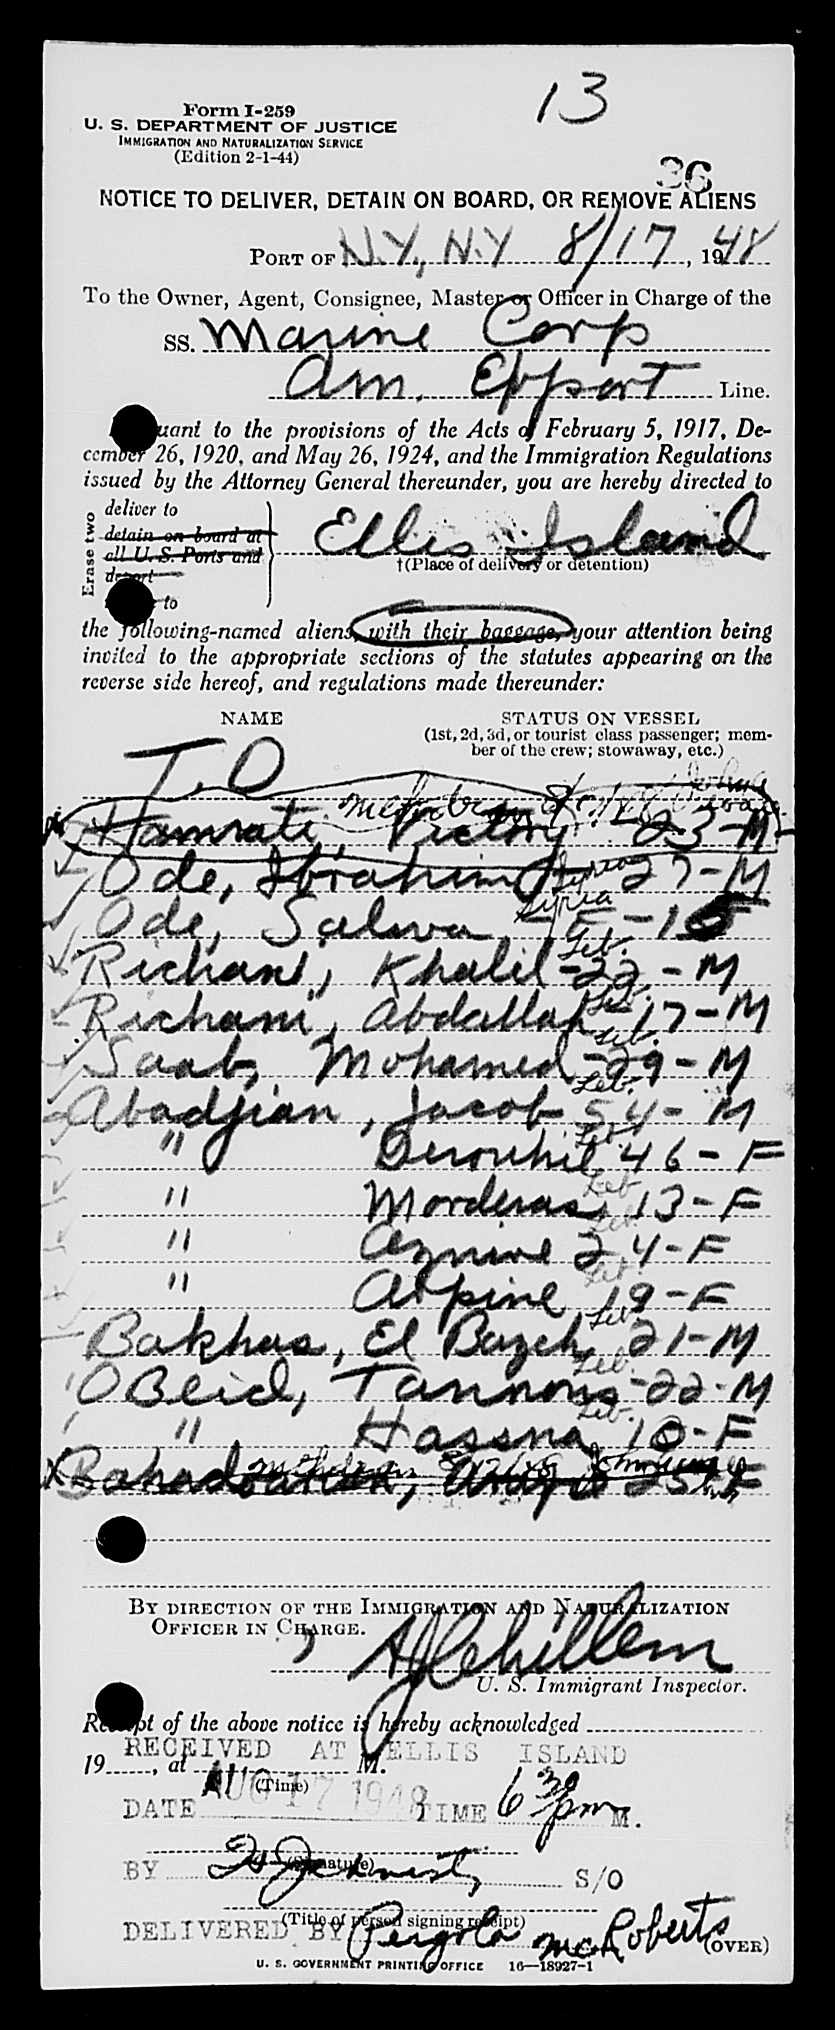 13
Form I-259
U. S. DEPARTMENT OF JUSTICE
IMMIGRATION AND NATURALIZATION SERVICE
(Edition 2-1-44)
36
NOTICE TO DELIVER, DETAIN ON BOARD, OR REMOVE ALIENS
PORT OF N.Y., N.Y 8/17, 1948
To the Owner, Agent, Consignee, Master or Officer in Charge of the
SS. Marine Carp
Am. Export Line.
uant to the provisions of the Acts of February 5, 1917, De-
cember 26, 1920, and May 26, 1924, and the Immigration Regulations
issued by the Attorney General thereunder, you are hereby directed to
Erase two
deliver to
detain on board at
all U. S. Ports and
deport
to
Ellis Island
†(Place of delivery or detention)
the following-named aliens, with their baggage, your attention being
invited to the appropriate sections of the statutes appearing on the
reverse side hereof, and regulations made thereunder:
NAME
STATUS ON VESSEL
(1st, 2d, 3d, or tourist class passenger; mem-
ber of the crew; stowaway, etc.)
T.O
Hamrati, Victory - 23-M-
Ode, Ibrahim Syria 27-M
Ode, Salwa Syria F-15
Richani, Khalil-22-M Leb.
Richani, Abdallah 17-M Leb.
Saab, Mohamed-29-M Leb.
Abadjian, Jacob 54-M Leb.
" 46-F Leb.
" 13-F Leb
" Aznive 24-F Leb.
" Arpine 19-F Leb.
Bakhas, El Bazeh 21-M Leb.
OBeid, Tannous-22-M Leb.
" Hassna 10-F Leb.
25-F
BY DIRECTION OF THE IMMIGRATION AND NATURALIZATION
OFFICER IN CHARGE.
U. S. Immigrant Inspector.
Receipt of the above notice is hereby acknowledged
RECEIVED AT ELLIS ISLAND
19, at M.
(Time)
DATE AUG 17 1948 TIME 6 30 pm M.
(Signature)
BY S/O
(Title of person signing receipt)
DELIVERED BY Pergola McRoberts
(OVER)
U. S. GOVERNMENT PRINTING OFFICE 16—18927-1